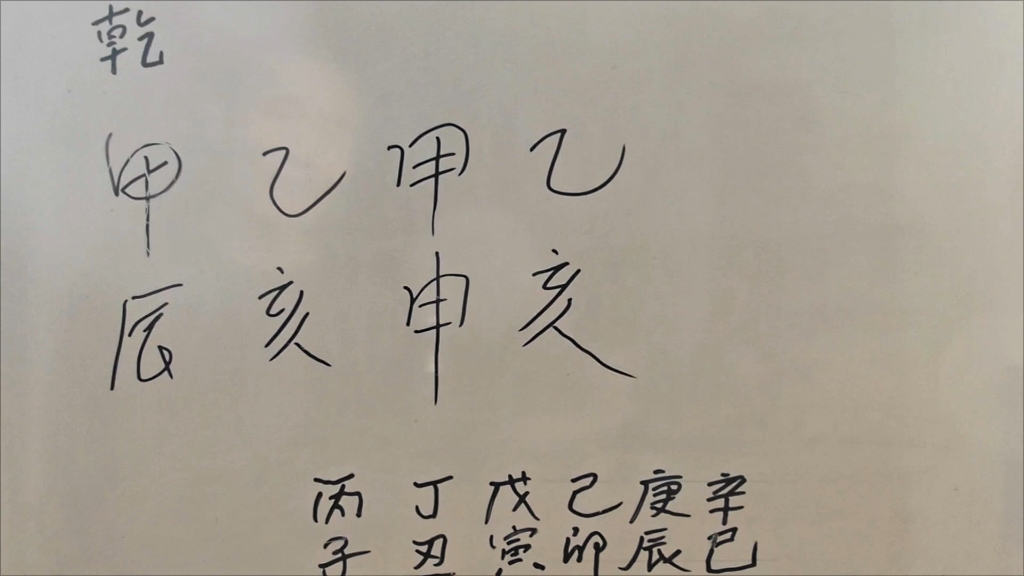 乾
甲乙甲乙
辰亥申亥
丙丁戊己庚辛
子丑寅卯辰巳